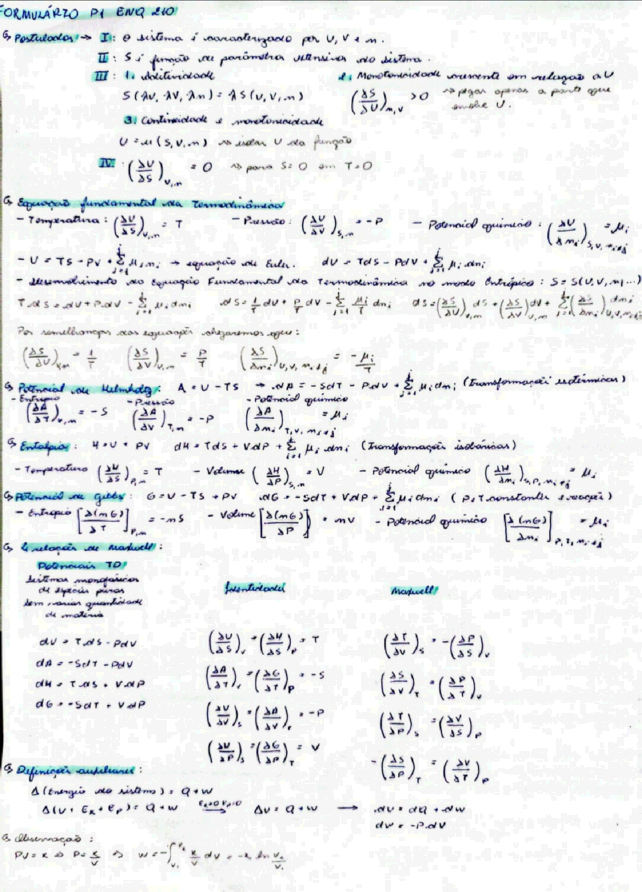 FORMULÁRIO P1 ENQ 210
Postulados → I: o sistema é caracterizado por U, V e n.
II: S é função de parâmetros extensivos do sistema.
III: 1. Aditividade
S(λU, λV, λn) = λS(U, V, n)
2. Monotonicidade crescente em relação a U
(∂S/∂U)V,n > 0 → pegar apenas a parte que envolve U.
3. Continuidade e monotonicidade
U = u(S, V, n) → isolar U da função
IV: (∂U/∂S)V,n = 0 → para S=0 em T=0
Equação fundamental da Termodinâmica
- Temperatura: (∂U/∂S)V,n = T - Pressão: (∂U/∂V)S,n = -P - Potencial químico: (∂U/∂ni)S,V,ni≠j = μi
- U = TS - PV + Σ μi ni → equação de Euler. dU = TdS - PdV + Σ μi dni
- Desenvolvimento da Equação Fundamental da Termodinâmica no modo Entrópico: S = S(U, V, n1...)
T.dS = dU + P.dV - Σ μi dni dS = 1/T dU + P/T dV - Σ μi/T dni dS = (∂S/∂U)V,n dS + (∂S/∂V)U,n dV + Σ (∂S/∂ni)U,V,ni≠j dni
Por semelhança das equações chegaremos que:
(∂S/∂U)V,n = 1/T (∂S/∂V)U,n = P/T (∂S/∂ni)U,V,ni≠j = -μi/T
Potencial de Helmholtz: A = U - TS → dA = -SdT - PdV + Σ μi dni (Transformações isotérmicas)
- Entropia - Pressão - Potencial químico
(∂A/∂T)V,n = -S (∂A/∂V)T,n = -P (∂A/∂n)T,V,ni≠j = μi
Entalpia: H = U + PV dH = TdS + VdP + Σ μi dni (Transformações isobáricas)
- Temperatura (∂H/∂S)P,n = T - Volume (∂H/∂P)S,n = V - Potencial químico (∂H/∂ni)S,P,ni≠j = μi
Potencial de Gibbs: G = U - TS + PV dG = -SdT + VdP + Σ μi dni (P e T constantes e reação)
- Entropia [∂(nG)/∂T]P,n = -nS - Volume [∂(nG)/∂P] = nV - Potencial químico [∂(nG)/∂ni]P,T,ni≠j = μi
4 relação de Maxwell:
Potenciais TD
sistemas monofásicos
de espécies puras
sem variar quantidade
de matéria
Identidades
Maxwell
dU = T.dS - PdV (∂U/∂S)V = (∂H/∂S)P = T (∂T/∂V)S = -(∂P/∂S)V
dA = -SdT - PdV (∂A/∂T)V = (∂G/∂T)P = -S (∂S/∂V)T = (∂P/∂T)V
dH = T.dS + V.dP (∂U/∂V)S = (∂A/∂V)T = -P (∂T/∂P)S = (∂V/∂S)P
dG = -SdT + VdP (∂H/∂P)S = (∂G/∂P)T = V -(∂S/∂P)T = (∂V/∂T)P
Definições auxiliares:
Δ(Energia do sistema) = Q + W
Δ(U + Ek + Ep) = Q + W ΔU = Q + W → dU = dQ + dW
dW = -P.dV
Observação:
PV = k → P = k/V → W = -∫ k/V dV = -k ln V2/V1